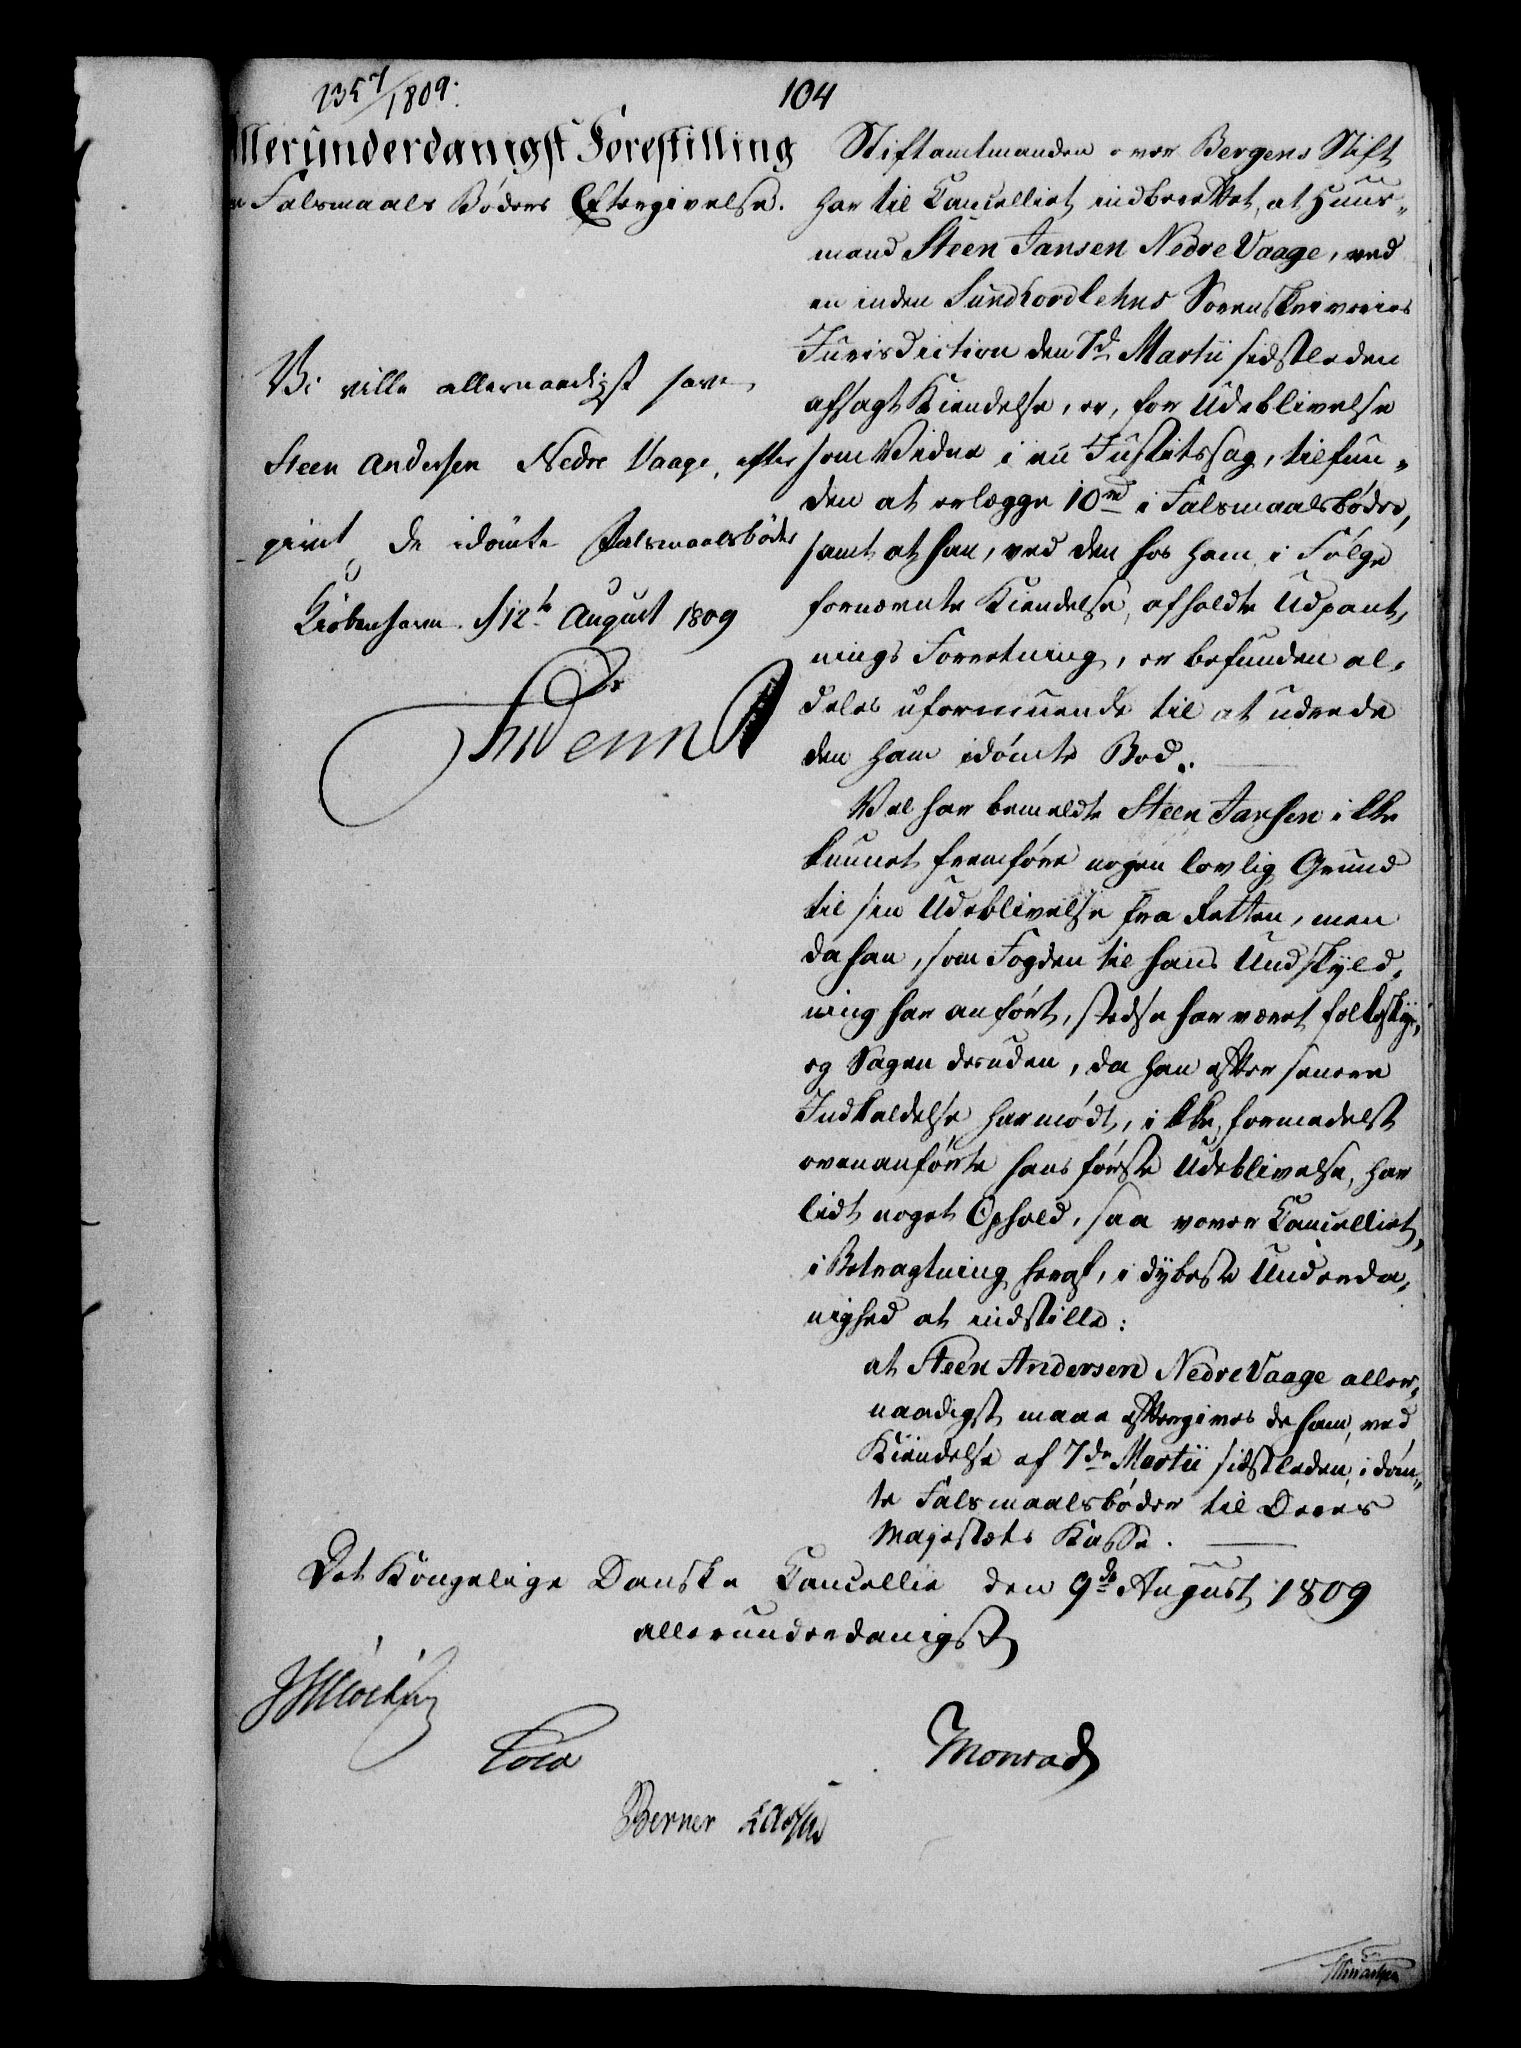 1357/1809.
104
Allerunderdanigst Forestilling
Falsmaals Bøders Eftergivelse.
Vi ville allernaadigst have
Steen Andersen Nedre Vaage, efter
givet de idømte Falsmaalsbøder
Kiöbenhavn d 12te August 1809
Frederik R
Stiftamtmanden over Bergens Stift
har til Cancelliet indberettet, at Huus-
mand Steen Jansen Nedre Vaage, ved
en inden Sundhordlehns Sorenskriveries
Jurisdiction den 7d Martii sidstleden
afsagt Kiendelse, er, for Udeblivelse
som Vidne i en Justitssag, tilfun-
den at erlægge 10 rd i Falsmaalsbøder,
samt at han, ved den hos ham i Følge
fornævnte Kiendelse, afholdte Udpant-
nings Forretning, er befunden al-
deles uformuende til at udrede
den ham idømte Bod.
Vel har bemeldte Steen Jansen ikke
kunnet fremføre nogen lovlig Grund
til sin Udeblivelse fra Retten, men
da han, som Fogden til hans Undskyld-
ning har anført, stedse har været folkesky,
og Sagen desuden, da han efter senere
Indkaldelse har mødt, ikke, formedelst
ovenanførte hans første Udeblivelse, har
lidt noget Ophold, saa vover Cancelliet,
i Betragtning heraf, i dybeste Underda-
nighed at indstille:
at Steen Andersen Nedre Vaage aller-
naadigst maae eftergives de ham, ved
Kiendelse af 7de Martii sidstleden, idøm-
te Falsmaalsbøder til Deres
Majestæts Kasse.
Det Kongelige Danske Cancellie den 9de August 1809
allerunderdanigst
Cold
Monrad
Berner Lassen